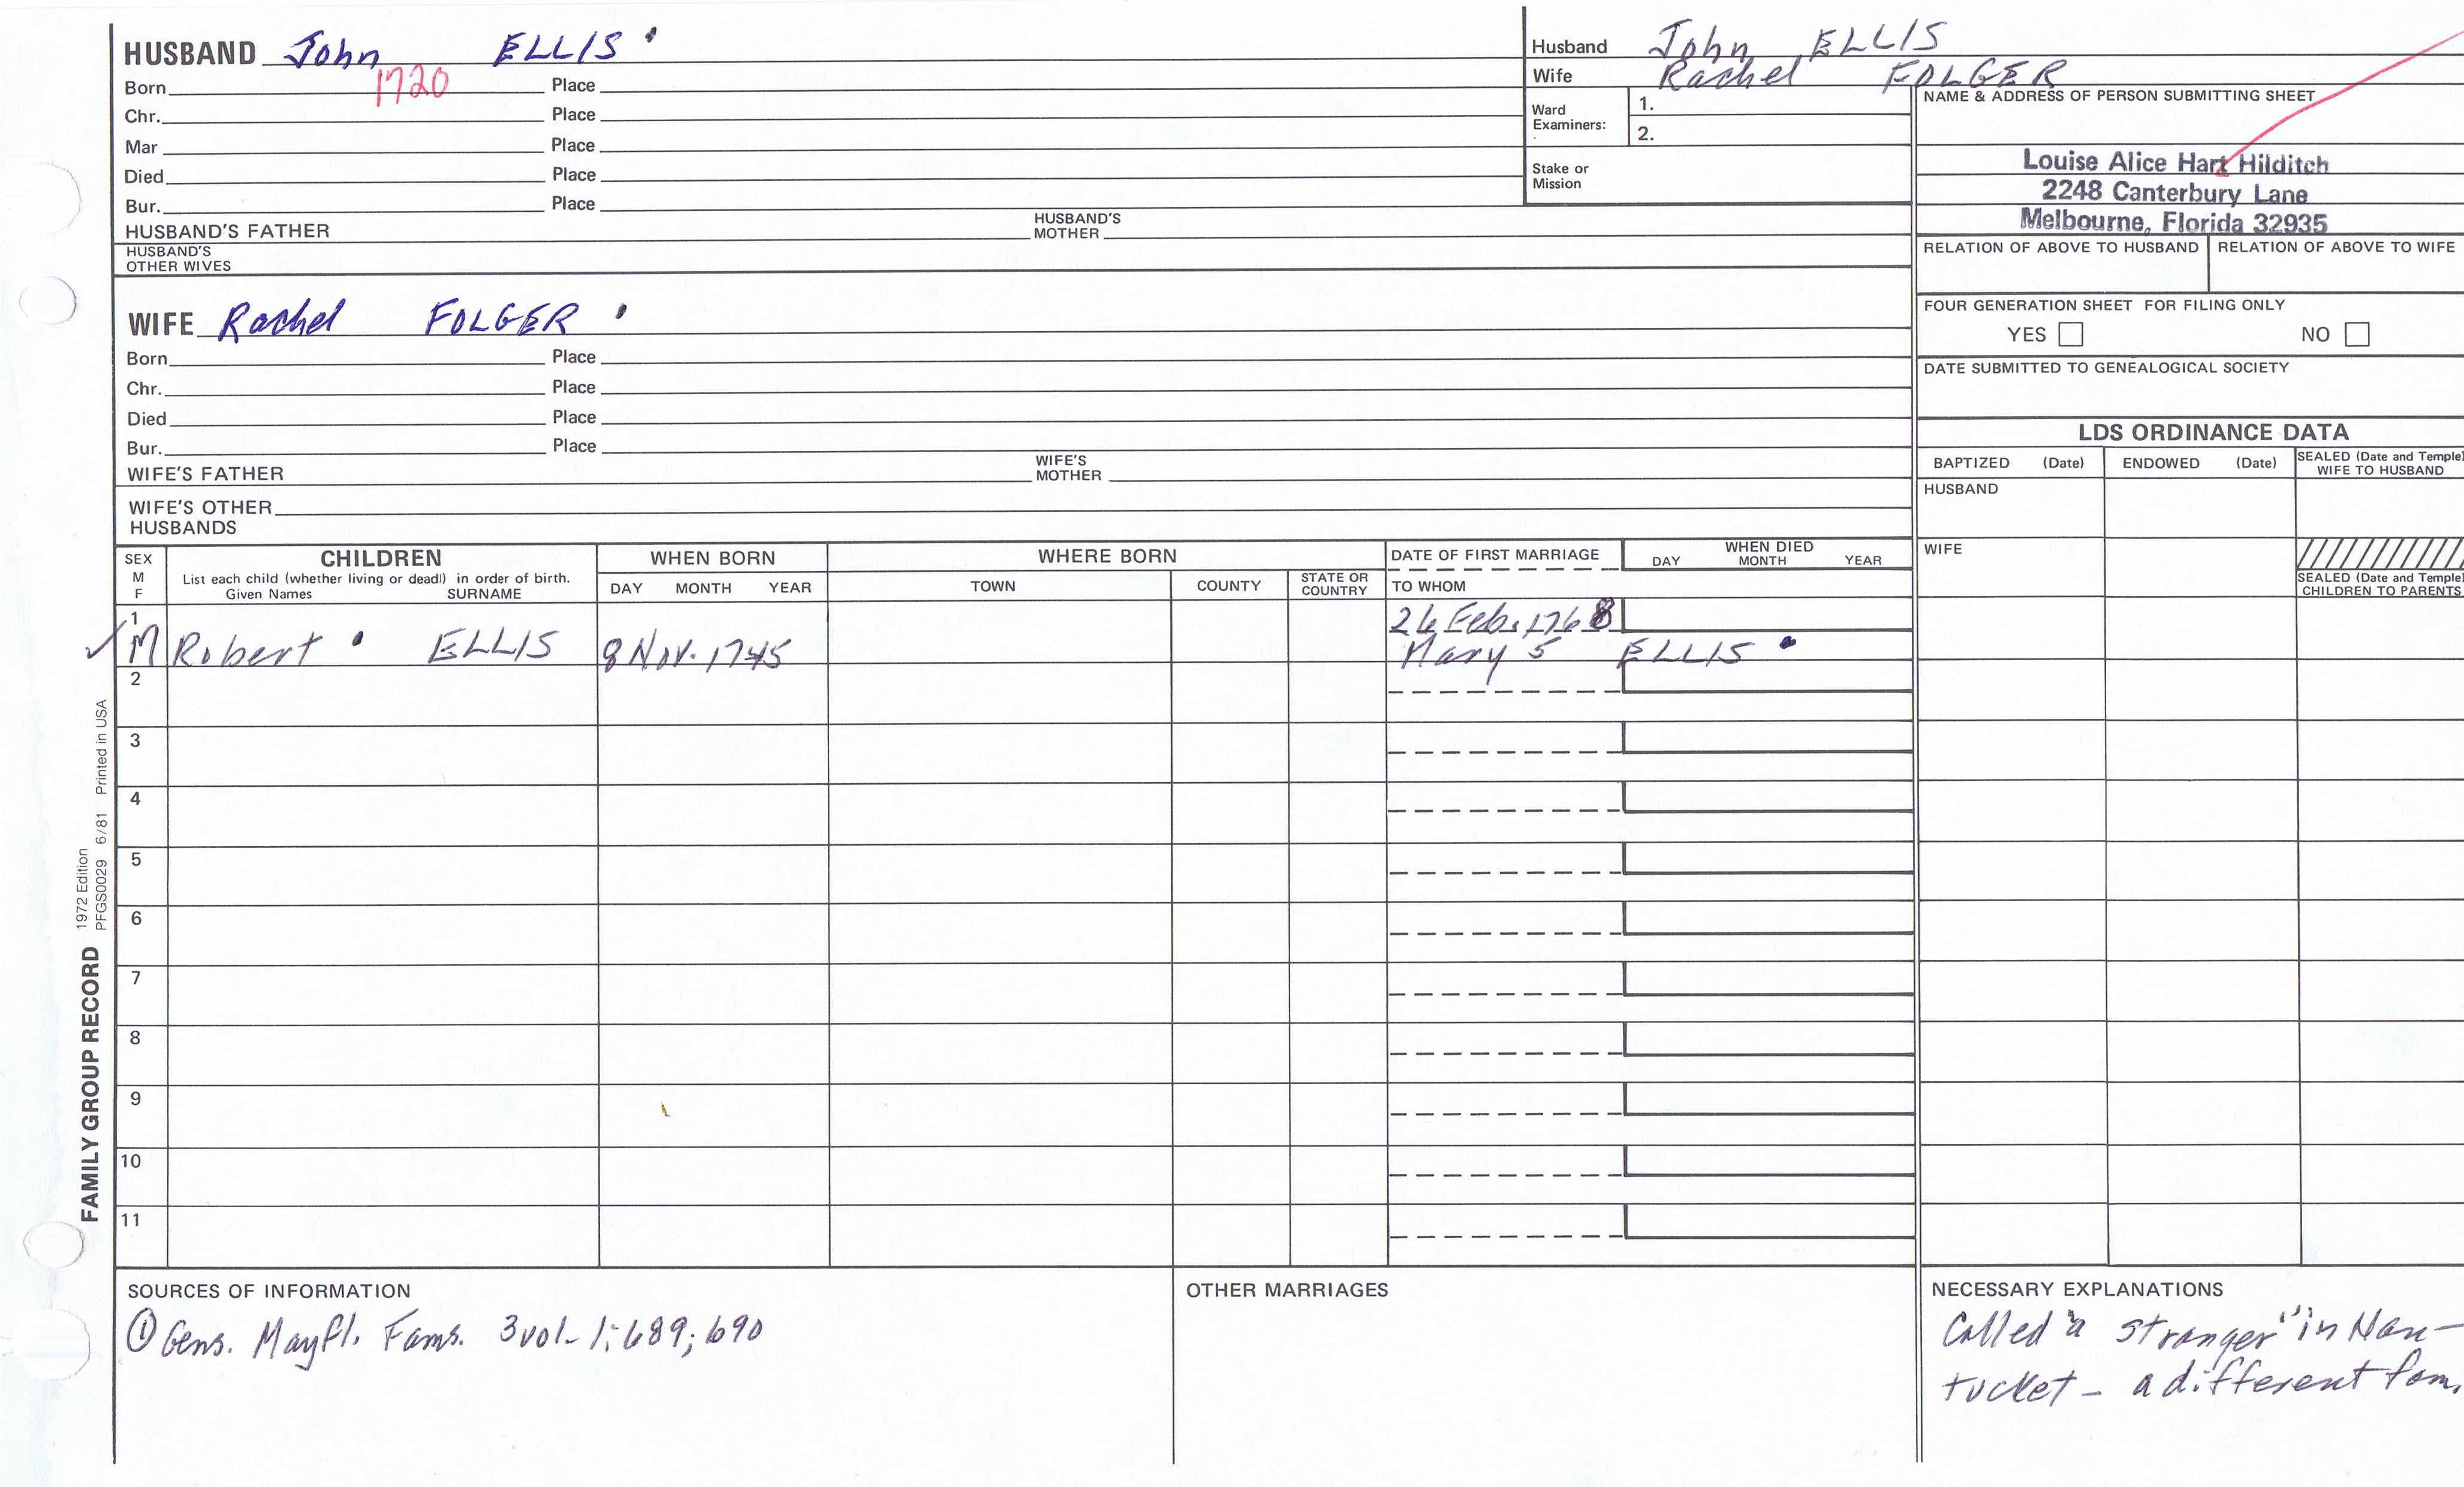 HUSBAND John ELLIS
Born 1720 Place
Chr. Place
Mar Place
Died Place
Bur. Place
HUSBAND'S FATHER HUSBAND'S MOTHER
HUSBAND'S OTHER WIVES
Husband John ELLIS
Wife Rachel FOLGER
Ward Examiners: 1.
2.
Stake or Mission
NAME & ADDRESS OF PERSON SUBMITTING SHEET
Louise Alice Hart Hilditch
2248 Canterbury Lane
Melbourne, Florida 32935
RELATION OF ABOVE TO HUSBAND RELATION OF ABOVE TO WIFE
FOUR GENERATION SHEET FOR FILING ONLY
YES NO
DATE SUBMITTED TO GENEALOGICAL SOCIETY
WIFE Rachel FOLGER
Born Place
Chr. Place
Died Place
Bur. Place
WIFE'S FATHER WIFE'S MOTHER
WIFE'S OTHER
HUSBANDS
LDS ORDINANCE DATA
BAPTIZED (Date) ENDOWED (Date) SEALED (Date and Temple)
WIFE TO HUSBAND
HUSBAND
WIFE
SEALED (Date and Temple)
CHILDREN TO PARENTS
SEX
M
F
CHILDREN
List each child (whether living or dead) in order of birth.
Given Names SURNAME
WHEN BORN
DAY MONTH YEAR
WHERE BORN
TOWN COUNTY STATE OR COUNTRY
DATE OF FIRST MARRIAGE
TO WHOM
WHEN DIED
DAY MONTH YEAR
1 26 Feb. 1768
M Robert ELLIS 8 Nov. 1745 Mary 5 ELLIS
2
3
4
5
6
7
8
9
10
11
FAMILY GROUP RECORD
1972 Edition
PFGS0029 6/81 Printed in USA
SOURCES OF INFORMATION
① Gens. Mayfl. Fams. 3vol- 1:689; 690
OTHER MARRIAGES
NECESSARY EXPLANATIONS
Called "a stranger" in Nan-
tucket - a different fam.